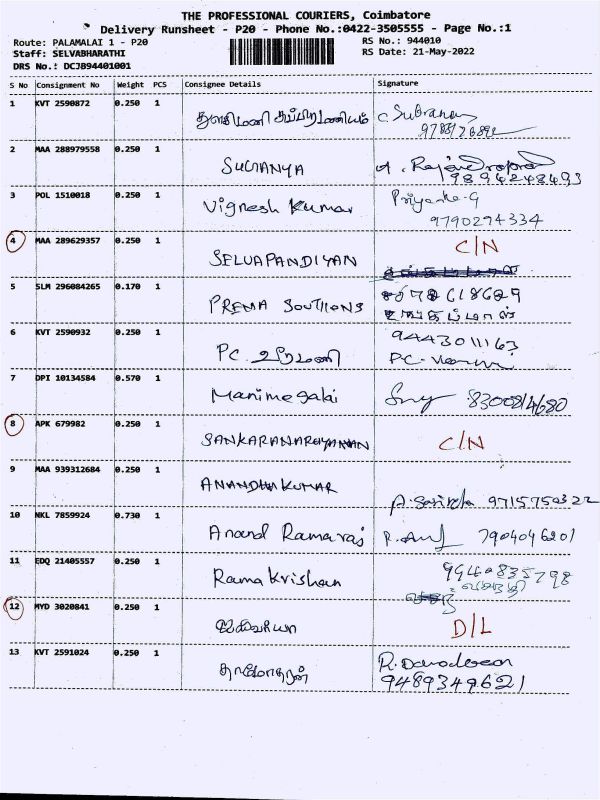 THE PROFESSIONAL COURIERS, Coimbatore
Delivery Runsheet - P20 - Phone No.:0422-3505555 - Page No.:1
Route: PALAMALAI 1 - P20
RS No.: 944010
Staff: SELVABHARATHI
RS Date: 21-May-2022
DRS No.: DCJB94401001
S No Consignment No Weight PCS Consignee Details Signature
1 KVT 2590872 0.250 1 C. Subraman
2 MAA 288979558 0.250 1 SUGANYA
9894248493
3 POL 1510018 0.250 1 Vignesh Kumar Priyanka-G
9790294334
4 MAA 289629357 0.250 1 SELVAPANDIYAN C/N
5 SLM 296084265 0.170 1 PREMA 8072618629
6 KVT 2590932 0.250 1 PC. 9443011163
7 DPI 10134584 0.570 1 Manimegalai
8 APK 679982 0.250 1 SANKARANARAYANAN C/N
9 MAA 939312684 0.250 1 ANANDHAKUMAR
10 NKL 7859924 0.730 1 Anand Ramaraj 7904046201
11 EDQ 21405557 0.250 1 Rama Krishan 9940835798
12 MYD 3020841 0.250 1 D/L
13 KVT 2591024 0.250 1 தாமோதரன் R. Damodaran
9489349621